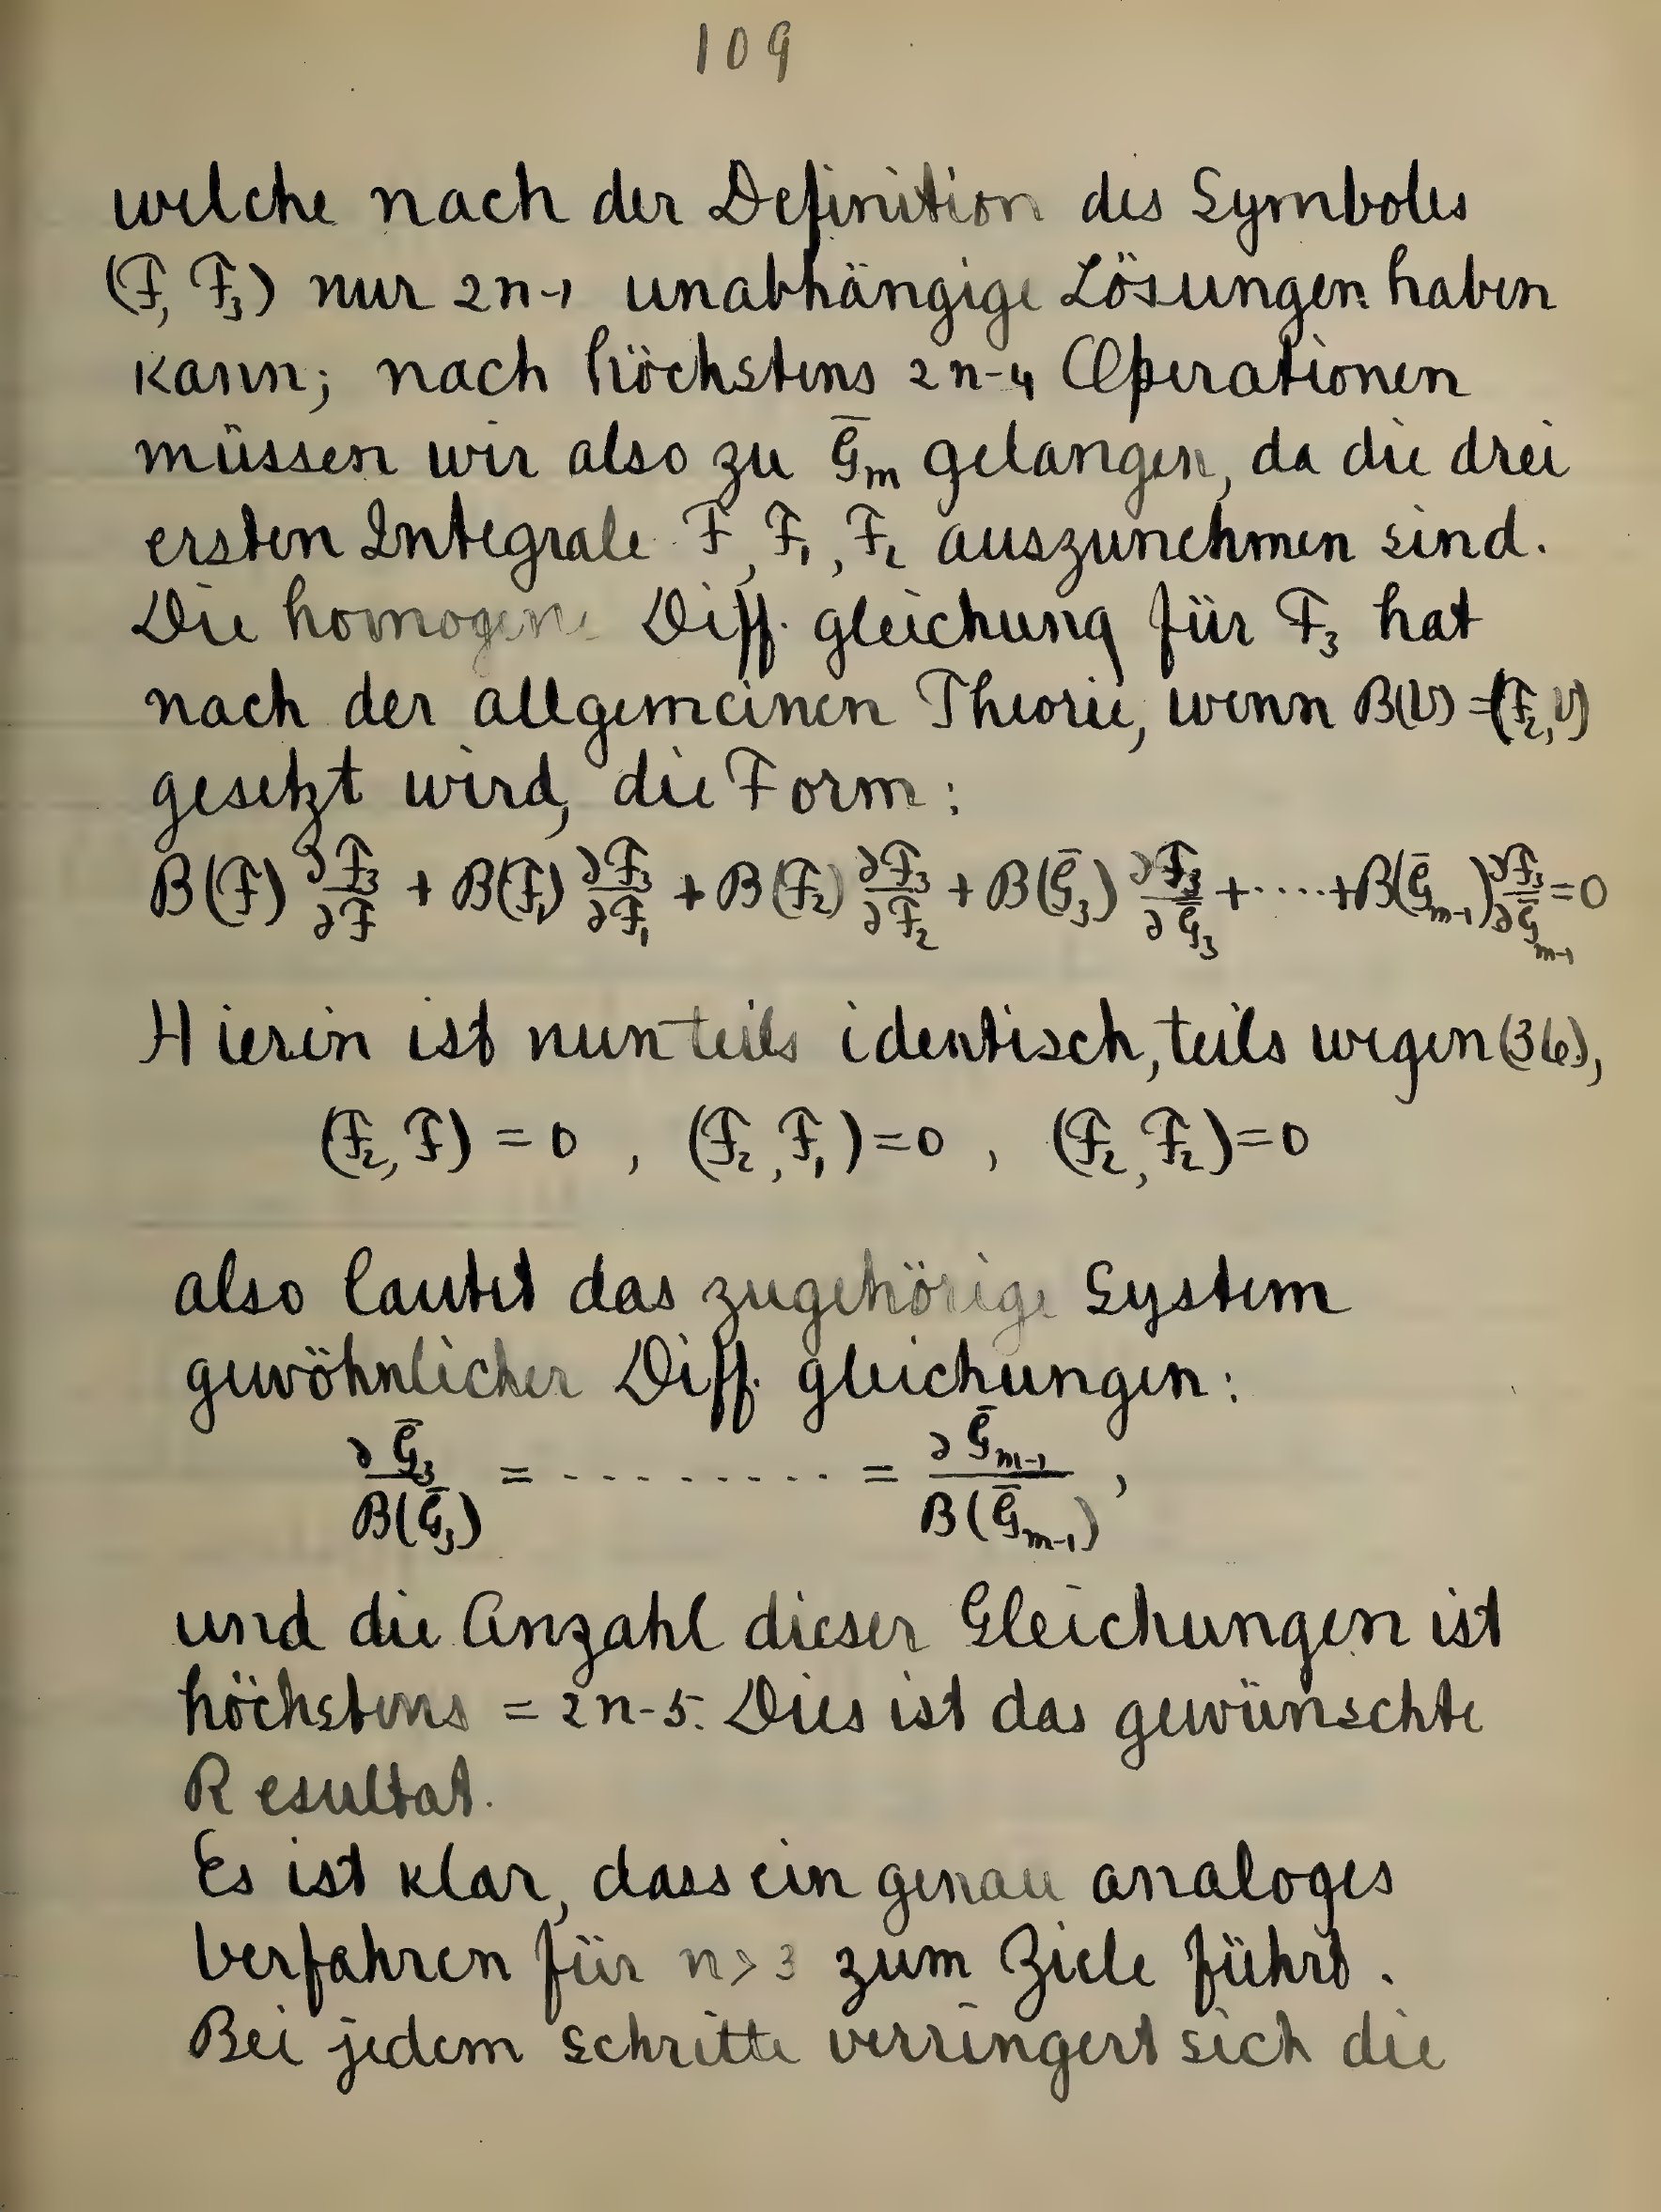 109
welche nach der Definition des Symboles
(F, F₃) nur 2n-1 unabhängige Lösungen haben
kann; nach höchstens 2n-4 Operationen
müssen wir also zu Ḡₘ gelangen, da die drei
ersten Integrale F, F₁, F₂ auszunehmen sind.
Die homogene Diff. gleichung für F₃ hat
nach der allgemeinen Theorie, wenn B(U) = (F₂, U)
gesetzt wird, die Form:
B(F) ∂F₃/∂F + B(F₁) ∂F₃/∂F₁ + B(F₂) ∂F₃/∂F₂ + B(Ḡ₃) ∂F₃/∂Ḡ₃ + ····· + B(Ḡₘ₋₁) ∂F₃/∂Ḡₘ₋₁ = 0
Hierin ist nun teils identisch, teils wegen (36),
(F₂, F) = 0 , (F₂, F₁) = 0 , (F₂, F₂) = 0
also lautet das zugehörige System
gewöhnlicher Diff. gleichungen:
∂Ḡ₃/B(Ḡ₃) = - - - - - - - - - = ∂Ḡₘ₋₁/B(Ḡₘ₋₁) ,
und die Anzahl dieser Gleichungen ist
höchstens = 2n-5. Dies ist das gewünschte
Resultat.
Es ist klar, dass ein genau analoges
Verfahren für n > 3 zum Ziele führt.
Bei jedem Schritte verringert sich die